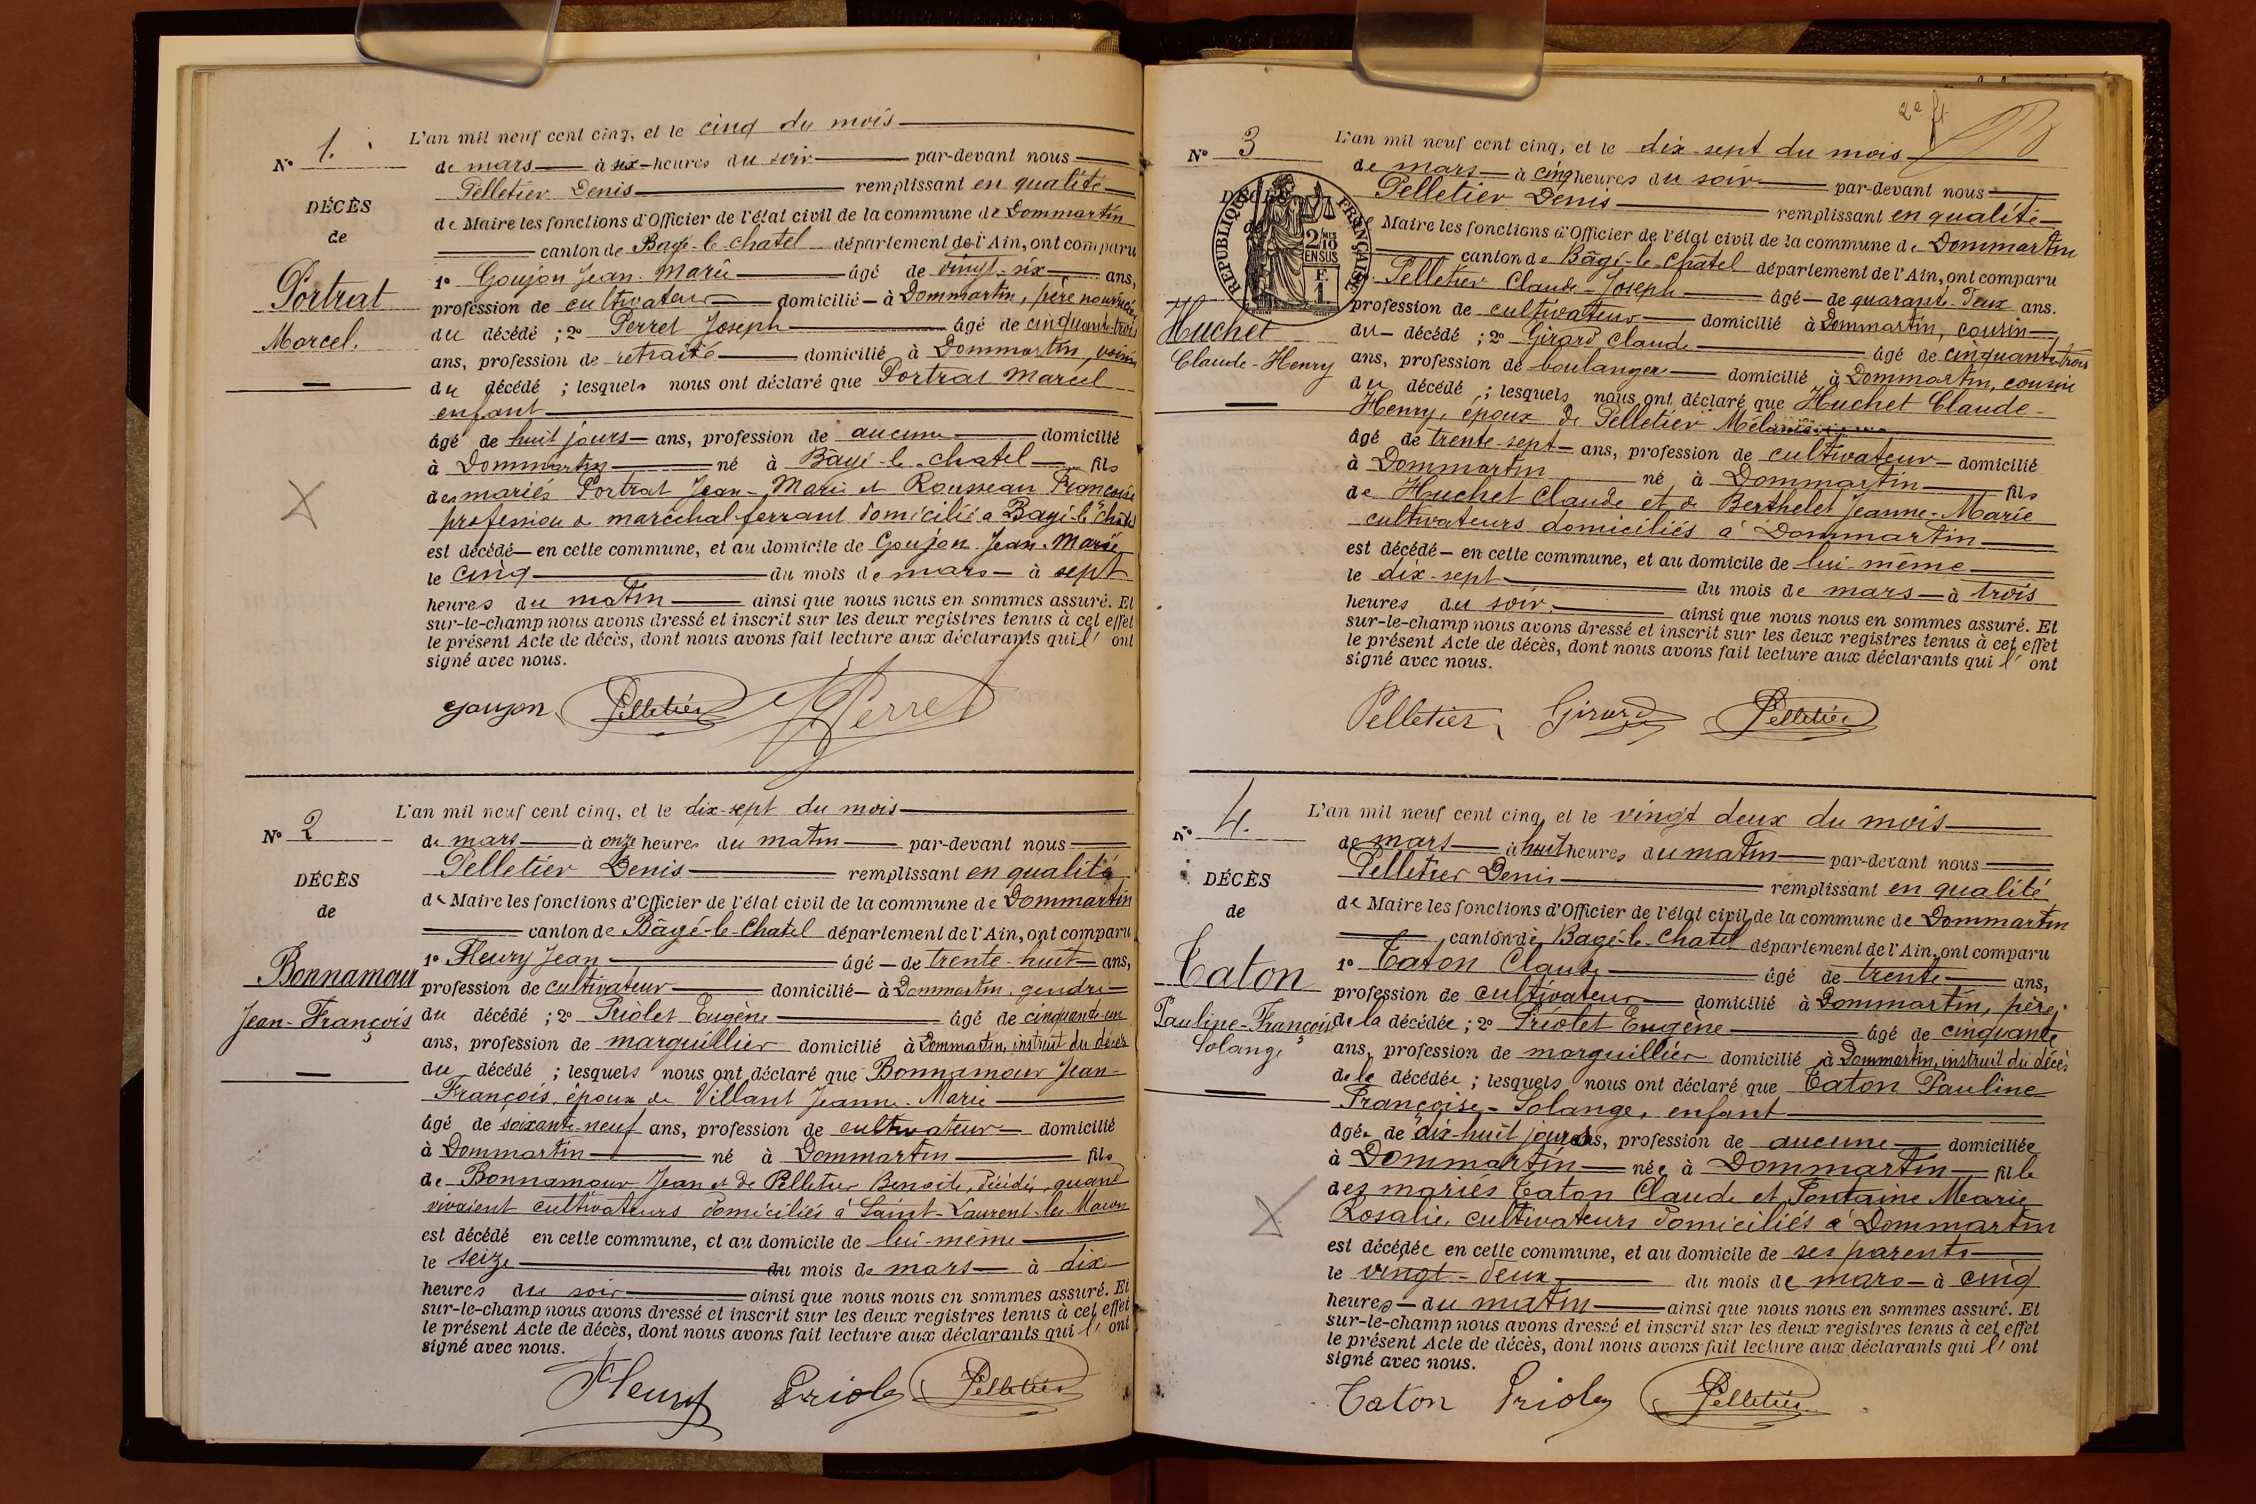 N° 1.
DÉCÈS
de
Portrat
Marcel.
L'an mil neuf cent cinq, et le cinq du mois
de mars à six heures du soir par-devant nous
Pelletier Denis remplissant en qualité
de Maire les fonctions d'Officier de l'état civil de la commune de Dommartin
canton de Bagé-le-Chatel département de l'Ain, ont comparu
1° Goujon Jean-Marie âgé de vingt-six ans,
profession de cultivateur domicilié à Dommartin, père nourricier
du décédé ; 2° Perret Joseph âgé de cinquante-trois
ans, profession de retraité domicilié à Dommartin, voisin
du décédé ; lesquels nous ont déclaré que Portrat Marcel
enfant
âgé de huit jours ans, profession de aucune domicilié
à Dommartin né à Bâgé-le-chatel fils
des mariés Portrat Jean-Marie et Rousseau Françoise
profession de maréchal-ferrant domicilié à Bagé-le-Châtel
est décédé en cette commune, et au domicile de Goujon Jean-Marie
le cinq du mois de mars à sept
heures du matin ainsi que nous nous en sommes assuré. Et
sur-le-champ nous avons dressé et inscrit sur les deux registres tenus à cet effet
le présent Acte de décès, dont nous avons fait lecture aux déclarants qui l' ont
signé avec nous.
Goujon Pelletier Perret
N° 2
DÉCÈS
de
Bonnamour
Jean-François
L'an mil neuf cent cinq, et le dix-sept du mois
de mars à onze heures du matin par-devant nous
Pelletier Denis remplissant en qualité
de Maire les fonctions d'Officier de l'état civil de la commune de Dommartin
canton de Bâgé-le-Chatel département de l'Ain, ont comparu
1° Fleury Jean âgé de trente-huit ans,
profession de cultivateur domicilié à Dommartin, gendre
du décédé ; 2° Priolet Eugène âgé de cinquante-un
ans, profession de marguillier domicilié à Dommartin, instruit du décès
du décédé ; lesquels nous ont déclaré que Bonnamour Jean-
François, époux de Villant Jeanne-Marie
âgé de soixante-neuf ans, profession de cultivateur domicilié
à Dommartin né à Dommartin fils
de Bonnamour Jean et de Pelletier Benoite, décédés, quand
vivaient cultivateurs domiciliés à Saint-Laurent-les-Macon
est décédé en cette commune, et au domicile de lui-même
le seize du mois de mars à dix
heures du soir ainsi que nous nous en sommes assuré. Et
sur-le-champ nous avons dressé et inscrit sur les deux registres tenus à cet effet
le présent Acte de décès, dont nous avons fait lecture aux déclarants qui l' ont
signé avec nous.
Fleury Priolet Pelletier
2e ft
N° 3
DÉCÈS
de
RÉPUBLIQUE FRANÇAISE
2/10 EN SUS
F. 1
Huchet
Claude-Henry
L'an mil neuf cent cinq, et le dix-sept du mois
de mars à cinq heures du soir par-devant nous
Pelletier Denis remplissant en qualité
de Maire les fonctions d'Officier de l'état civil de la commune de Dommartin
canton de Bâgé-le-Châtel département de l'Ain, ont comparu
Pelletier Claude-Joseph âgé de quarante-deux ans.
profession de cultivateur domicilié à Dommartin, cousin
du décédé ; 2° Girard Claude âgé de cinquante-trois
ans, profession de boulanger domicilié à Dommartin, cousin
du décédé ; lesquels nous ont déclaré que Huchet Claude-
Henry, époux de Pelletier Mélanie
âgé de trente-sept ans, profession de cultivateur domicilié
à Dommartin né à Dommartin fils
de Huchet Claude et de Berthelet Jeanne-Marie
cultivateurs domiciliés à Dommartin
est décédé en cette commune, et au domicile de lui-même
le dix-sept du mois de mars à trois
heures du soir ainsi que nous nous en sommes assuré. Et
sur-le-champ nous avons dressé et inscrit sur les deux registres tenus à cet effet
le présent Acte de décès, dont nous avons fait lecture aux déclarants qui l' ont
signé avec nous.
Pelletier Girard Pelletier
N° 4.
DÉCÈS
de
Caton
Pauline-Françoise
Solange
L'an mil neuf cent cinq, et le vingt deux du mois
de mars à huit heures du matin par-devant nous
Pelletier Denis remplissant en qualité
de Maire les fonctions d'Officier de l'état civil de la commune de Dommartin
canton de Bagé-le-Chatel département de l'Ain, ont comparu
1° Caton Claude âgé de trente ans,
profession de cultivateur domicilié à Dommartin, père
de la décédée ; 2° Priolet Eugène âgé de cinquante
ans, profession de marguillier domicilié à Dommartin, instruit du décès
de la décédée ; lesquels nous ont déclaré que Caton Pauline
Françoise-Solange, enfant
âgée de dix-huit jours ans, profession de aucune domiciliée
à Dommartin née à Dommartin fille
des mariés Caton Claude et Fontaine Marie
Rosalie, cultivateurs domiciliés à Dommartin
est décédée en cette commune, et au domicile de ses parents
le vingt-deux du mois de mars à cinq
heures du matin ainsi que nous nous en sommes assuré. Et
sur-le-champ nous avons dressé et inscrit sur les deux registres tenus à cet effet
le présent Acte de décès, dont nous avons fait lecture aux déclarants qui l' ont
signé avec nous.
Caton Priolet Pelletier